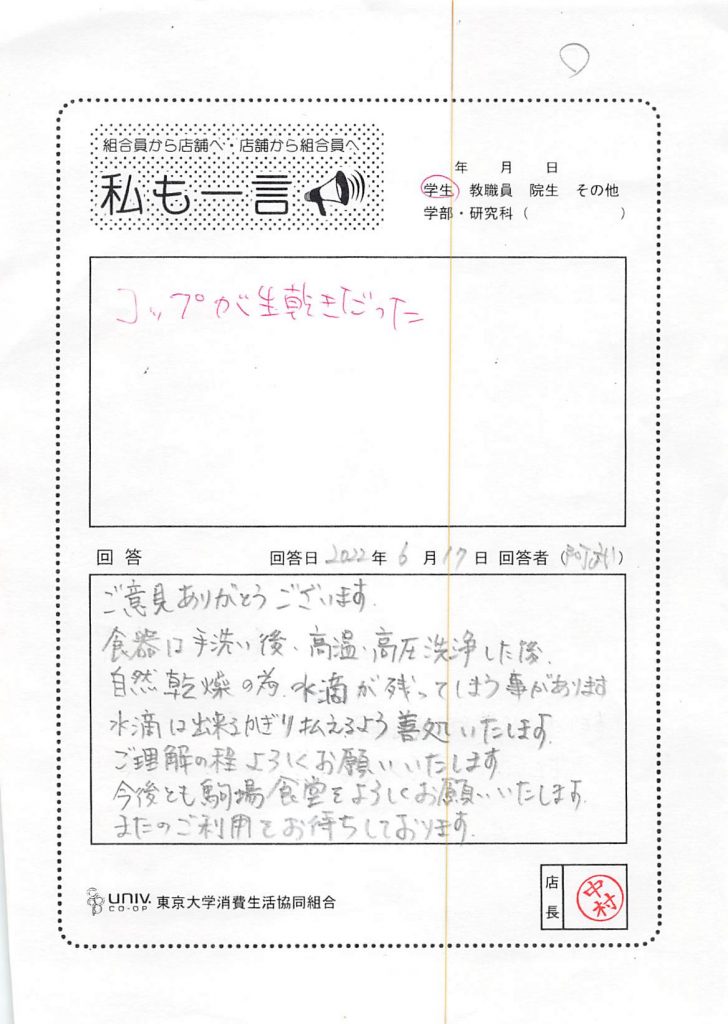 組合員から店舗へ・店舗から組合員へ
私も一言
年 月 日
学生 教職員 院生 その他
学部・研究科( )
コップが生乾きだった
回答 回答日 2022 年 6 月 17 日 回答者( )
ご意見ありがとうございます.
食器は手洗い後、高温・高圧洗浄した後、
自然乾燥の為、水滴が残ってしまう事があります
水滴は出来るかぎり払えるよう善処いたします.
ご理解の程よろしくお願いいたします
今後とも駒場食堂をよろしくお願いいたします.
またのご利用をお待ちしております.
UNIV. CO-OP 東京大学消費生活協同組合
店長
中村